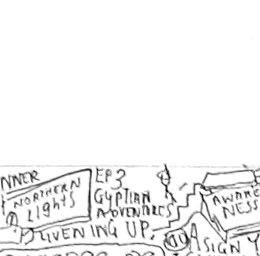 NNER
NORTHERN
LIGHTS
EP 3
GYPTIAN
ADVENTURES
LIVENING UP.
AWARE
NESS
A SIGN